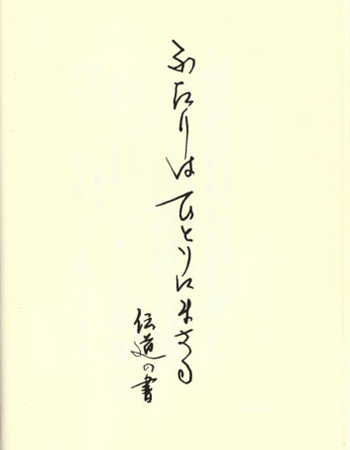 ふたりはひとりにまさる
伝道の書